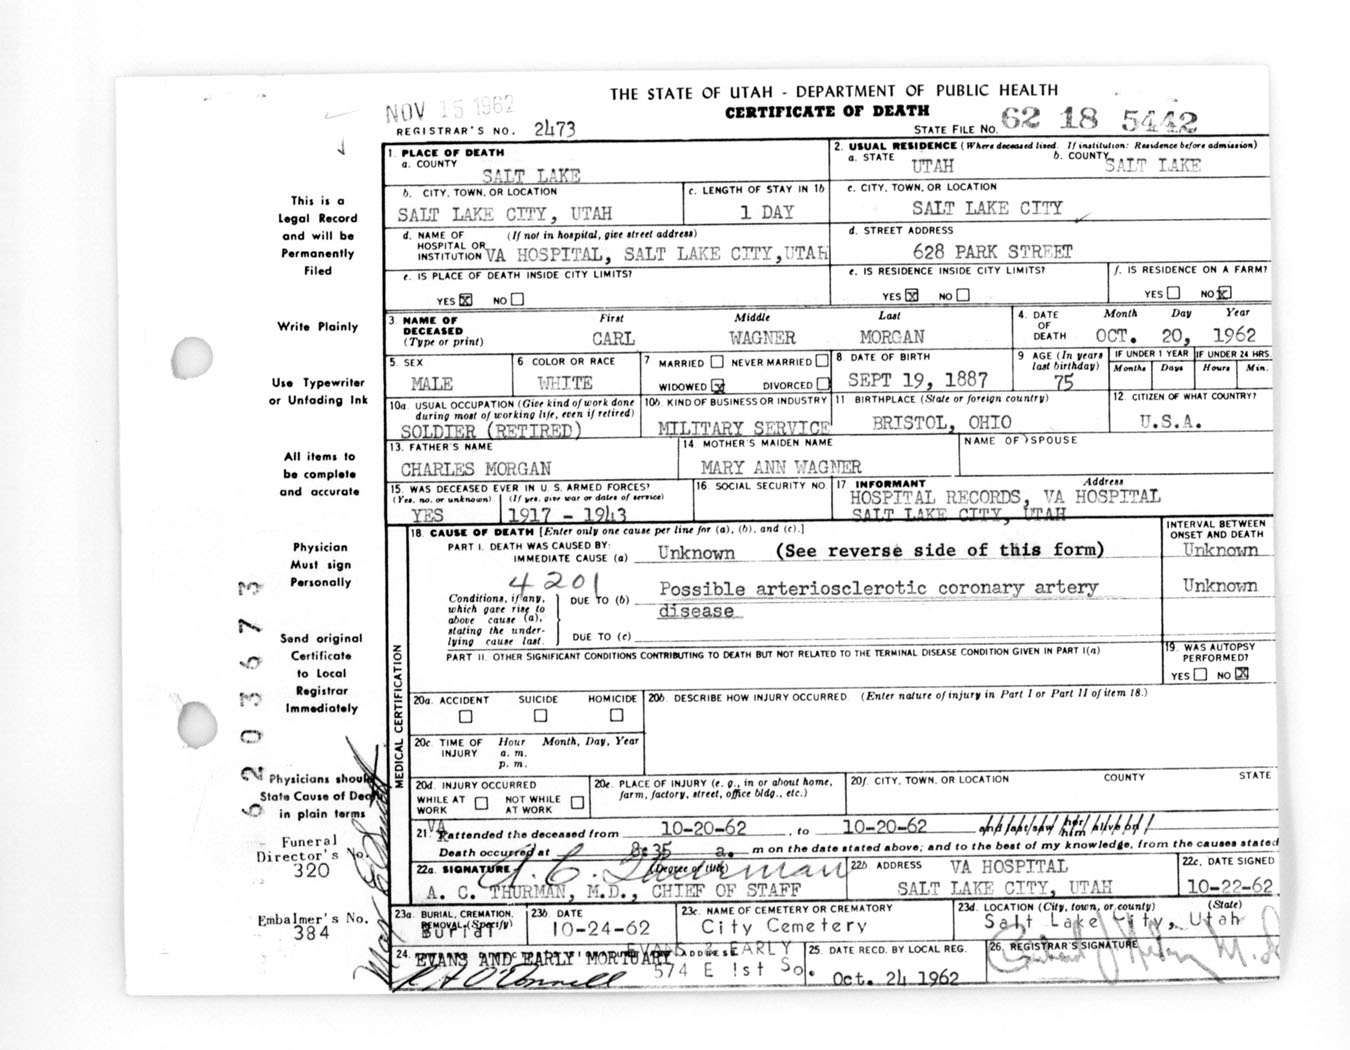 THE STATE OF UTAH - DEPARTMENT OF PUBLIC HEALTH
CERTIFICATE OF DEATH
NOV 15 1962
REGISTRAR'S NO. 2473
STATE FILE NO. 62 18 5442
1. PLACE OF DEATH
a. COUNTY
SALT LAKE
2. USUAL RESIDENCE (Where deceased lived. If institution: Residence before admission)
a. STATE UTAH b. COUNTY SALT LAKE
b. CITY, TOWN, OR LOCATION
SALT LAKE CITY, UTAH
c. LENGTH OF STAY IN 1b
1 DAY
c. CITY, TOWN, OR LOCATION
SALT LAKE CITY
d. NAME OF (If not in hospital, give street address)
HOSPITAL OR
INSTITUTION VA HOSPITAL, SALT LAKE CITY, UTAH
d. STREET ADDRESS
628 PARK STREET
e. IS PLACE OF DEATH INSIDE CITY LIMITS?
YES X NO
e. IS RESIDENCE INSIDE CITY LIMITS?
YES X NO
f. IS RESIDENCE ON A FARM?
YES NO X
3 NAME OF DECEASED (Type or print)
First Middle Last
CARL WAGNER MORGAN
4. DATE OF DEATH
Month Day Year
OCT. 20, 1962
5 SEX
MALE
6 COLOR OR RACE
WHITE
7 MARRIED NEVER MARRIED
WIDOWED X DIVORCED
8 DATE OF BIRTH
SEPT 19, 1887
9 AGE (In years last birthday)
75
IF UNDER 1 YEAR IF UNDER 24 HRS.
Months Days Hours Min.
10a. USUAL OCCUPATION (Give kind of work done
during most of working life, even if retired)
SOLDIER (RETIRED)
10b. KIND OF BUSINESS OR INDUSTRY
MILITARY SERVICE
11 BIRTHPLACE (State or foreign country)
BRISTOL, OHIO
12. CITIZEN OF WHAT COUNTRY?
U.S.A.
13. FATHER'S NAME
CHARLES MORGAN
14. MOTHER'S MAIDEN NAME
MARY ANN WAGNER
NAME OF SPOUSE
15. WAS DECEASED EVER IN U. S. ARMED FORCES?
(Yes, no, or unknown) (If yes, give war or dates of service)
YES 1917 - 1943
16. SOCIAL SECURITY NO.
17 INFORMANT Address
HOSPITAL RECORDS, VA HOSPITAL
SALT LAKE CITY, UTAH
MEDICAL CERTIFICATION
18. CAUSE OF DEATH [Enter only one cause per line for (a), (b), and (c).]
INTERVAL BETWEEN
ONSET AND DEATH
PART I. DEATH WAS CAUSED BY:
IMMEDIATE CAUSE (a) Unknown (See reverse side of this form) Unknown
4201
Conditions, if any,
which gave rise to
above cause (a),
stating the under-
lying cause last.
DUE TO (b) Possible arteriosclerotic coronary artery Unknown
disease
DUE TO (c)
PART II. OTHER SIGNIFICANT CONDITIONS CONTRIBUTING TO DEATH BUT NOT RELATED TO THE TERMINAL DISEASE CONDITION GIVEN IN PART I(a)
19. WAS AUTOPSY
PERFORMED?
YES NO X
20a. ACCIDENT SUICIDE HOMICIDE
20b. DESCRIBE HOW INJURY OCCURRED. (Enter nature of injury in Part I or Part II of item 18.)
20c TIME OF INJURY
Hour Month, Day, Year
a. m.
p. m.
20d. INJURY OCCURRED
WHILE AT WORK NOT WHILE AT WORK
20e. PLACE OF INJURY (e. g., in or about home,
farm, factory, street, office bldg., etc.)
20f. CITY, TOWN, OR LOCATION COUNTY STATE
21 VA attended the deceased from 10-20-62, to 10-20-62
Death occurred at 8:35 a. m on the date stated above; and to the best of my knowledge, from the causes stated
22a. SIGNATURE (Degree or title)
A. C. Thurman
A. C. THURMAN, M.D., CHIEF OF STAFF
22b ADDRESS VA HOSPITAL
SALT LAKE CITY, UTAH
22c. DATE SIGNED
10-22-62
23a. BURIAL, CREMATION,
REMOVAL (Specify)
Burial
23b DATE
10-24-62
23c. NAME OF CEMETERY OR CREMATORY
City Cemetery
23d. LOCATION (City, town, or county) (State)
Salt Lake City, Utah
24. EVANS AND EARLY MORTUARY
EVANS & EARLY
574 E 1st So.
25. DATE RECD. BY LOCAL REG.
Oct. 24 1962
26. REGISTRAR'S SIGNATURE
This is a
Legal Record
and will be
Permanently
Filed
Write Plainly
Use Typewriter
or Unfading Ink
All items to
be complete
and accurate
Physician
Must sign
Personally
Send original
Certificate
to Local
Registrar
Immediately
Physicians should
State Cause of Death
in plain terms
Funeral
Director's No.
320
Embalmer's No.
384
6203673